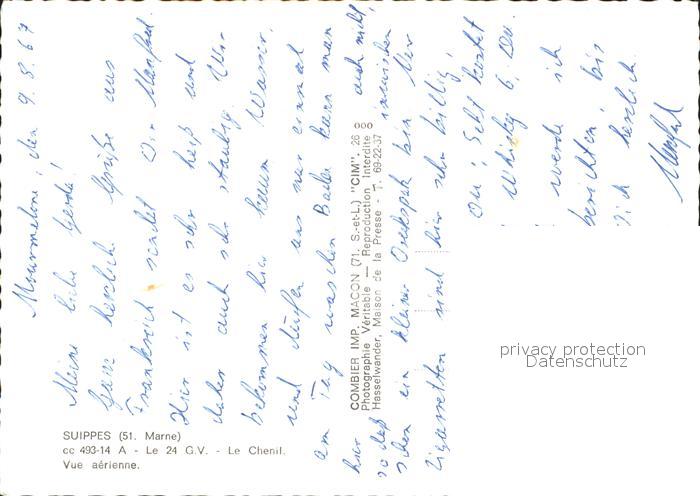 Mourmelon, den 9.8.67
Meine liebe Gerda!
Ganz herzliche Grüße aus
Frankreich sendet Dir Manfred.
Hier ist es sehr heiß und
daher auch sehr staubig. Wir
bekommen hier kaum Wasser,
und dürfen uns nur einmal
am Tag waschen. Baden kann man
hier auch nicht,
so daß inzwischen
schon ein kleiner Dreckspatz bin. Der
Zigaretten sind hier sehr billig!
Whisky 6, DM.
werde ich
berichten, bis
herzlich
Manfred
SUIPPES (51. Marne)
cc 493-14 A - Le 24 G.V. - Le Chenil.
Vue aérienne.
COMBIER IMP. MACON (71. S.-et-L.) "CIM". 26 000
Photographie Véritable — Reproduction Interdite
Hasselwander, Maison de la Presse - T. 69-22-37
privacy protection
Datenschutz